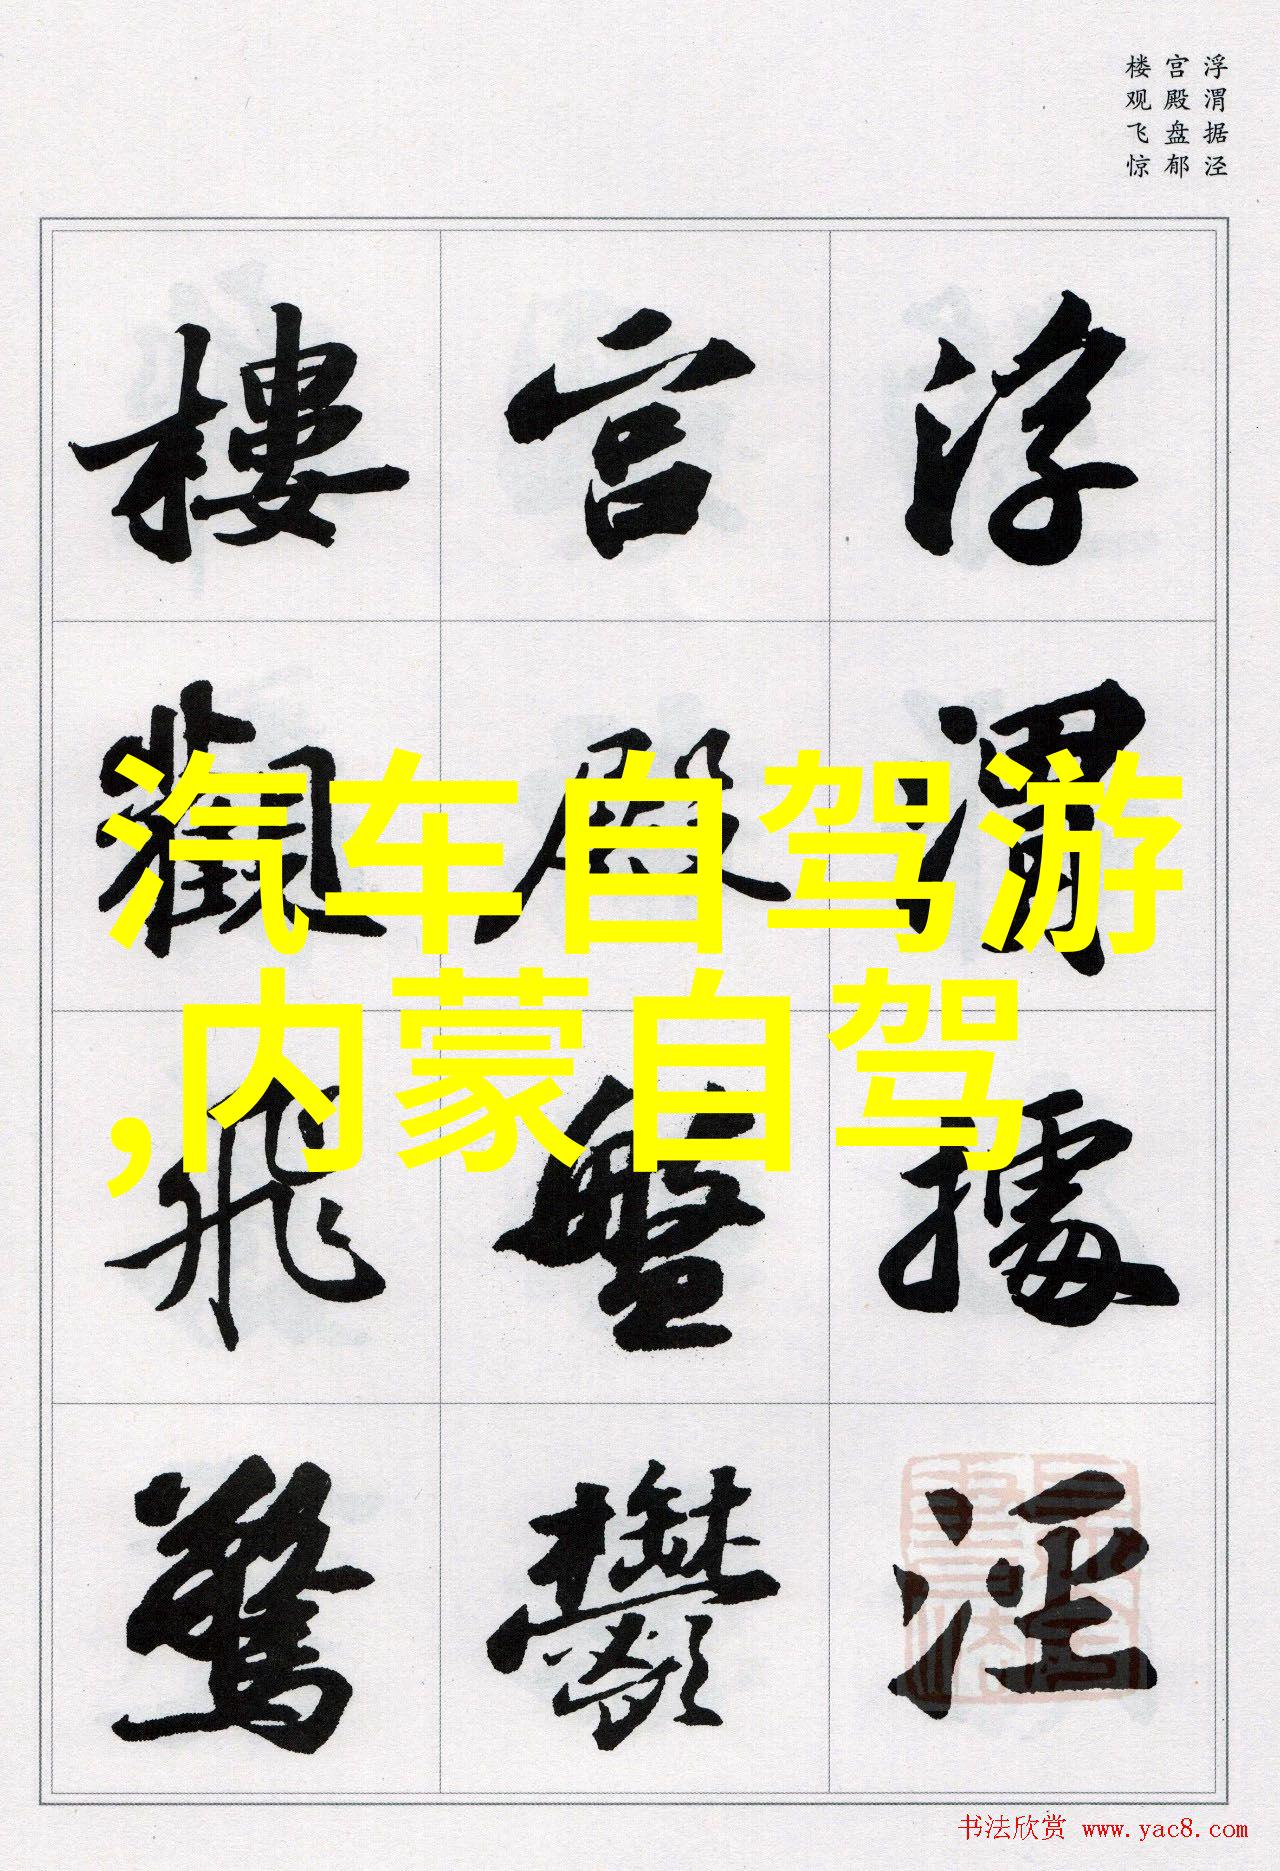 浮渭据泾
宫殿盘郁
楼观飞惊
浮渭據涇
宫殿盤鬱
樓觀飛驚
汽车自驾游
,内蒙自驾
书法欣赏 www.yac8.com